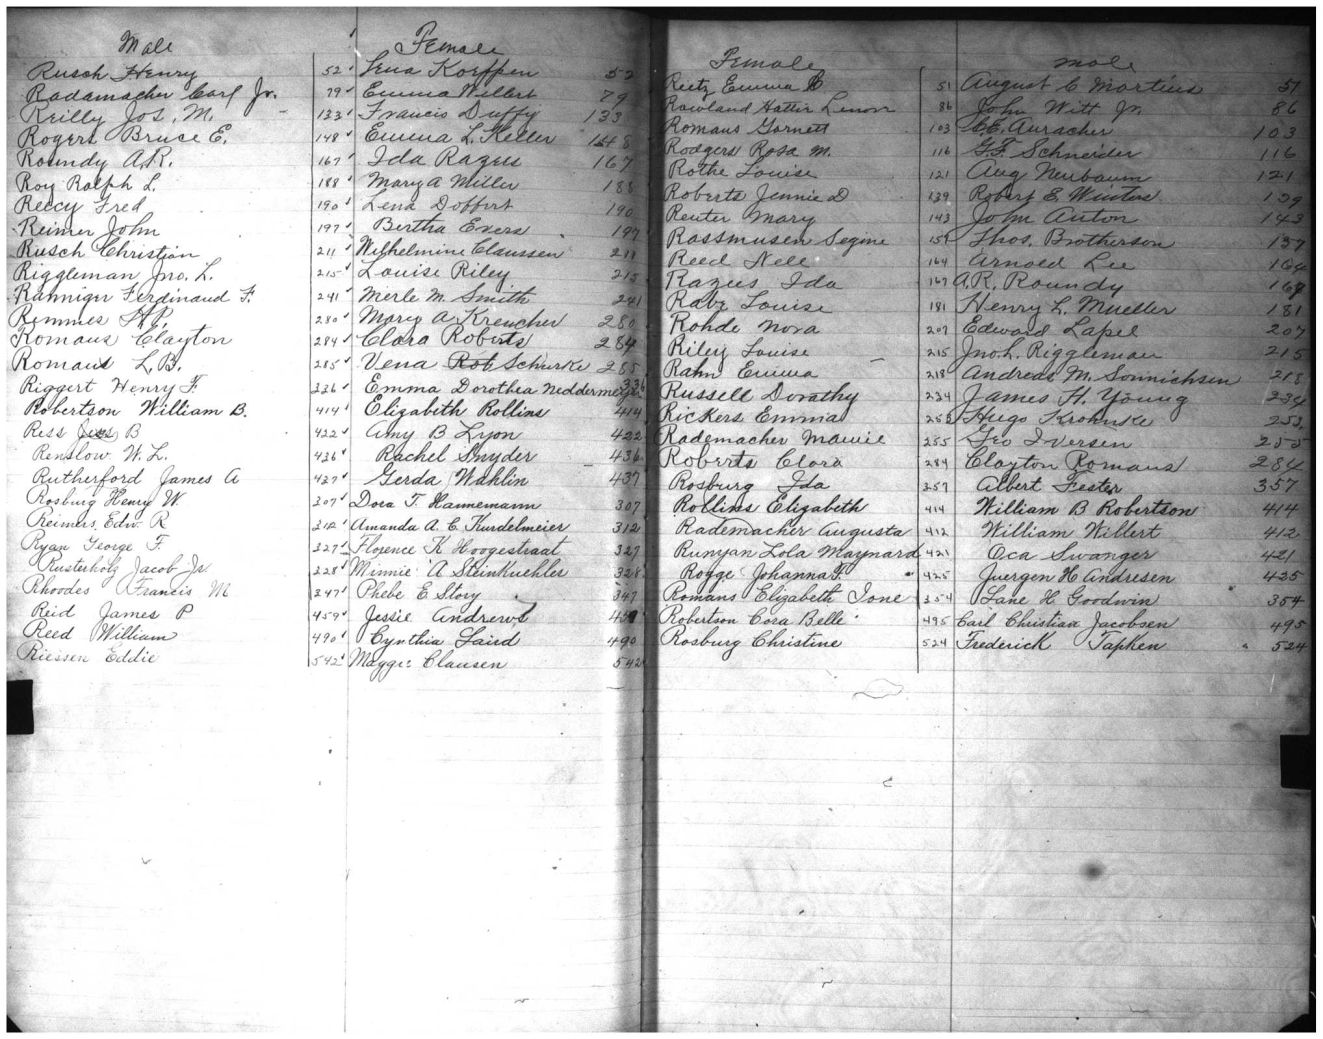 Male Female
Rusch Henry 52 Lena Koeppen 52
Radamacher Carl Jr. 79 Emma Willert 79
Reilly Jos. M. 133 Francis Duffy 133
Rogers Bruce E. 148 Emma L. Keller 148
Roundy A.R. 167 Ida Razeis 167
Roy Ralph L. 188 Mary A Miller 188
Reccy Fred 190 Lena Doffert 190
Reimer John 197 Bertha Evers 197
Rusch Christian 211 Wilhelmine Claussen 211
Riggleman Jno. L. 215 Louise Riley 215
Ranniger Ferdinand F. 241 Merle M. Smith 241
Remmes H.P. 280 Mary A Kreucher 280
Romans Clayton 284 Clara Roberts 284
Romans L.B. 285 Vena Rob Schurke 285
Riggert Henry F. 336 Emma Dorothea Neddermeyer 336
Robertson William B. 414 Elizabeth Rollins 414
Ress B 422 Amy B Lyon 422
Renslow W.L. 436 Rachel Snyder 436
Rutherford James A 437 Gerda Wahlin 437
Rosburg Henry W. 307 Dora T. Hannemann 307
Reimers, Edw. R 312 Amanda A. C Kurdelmeier 312
Ryan George F. 327 Florence K Hoogestraat 327
Rusterholz Jacob Jr. 328 Minnie A Steinkuehler 328
Rhoades Francis M 347 Phebe E Story 347
Reid James P 459 Jessie Andrews 459
Reed William 490 Cynthia Laird 490
Riessen Eddie 542 Maggie Clausen 542
Female Male
Reitz Emma C 51 August C Martins 51
Rowland Hattie Lenon 86 John Witt Jr. 86
Romans Garnett 103 C.E. Auracher 103
Rodgers Rosa M. 116 G.F. Schneider 116
Rothe Louise 121 Aug Neubaum 121
Roberts Jennie D 139 Robert E Winters 139
Reuter Mary 143 John Anton 143
Rassmusen Segine 157 Thos. Brotherson 157
Reed Nell 164 Arnold Lee 164
Razeis Ida 167 A.R. Roundy 167
Rabe Louise 181 Henry L. Mueller 181
Rohde Nora 207 Edward Lapel 207
Riley Louise 215 Jno. L. Riggleman 215
Rahn Emma 218 Andreas M. Sonnichsen 218
Russell Dorathy 234 James H. Young 234
Rickers Emma 253 Hugo Krohnke 253
Rademacher Mamie 255 Geo Iversen 255
Roberts Clara 284 Clayton Romans 284
Rosburg Ida 357 Albert Fester 357
Rollins Elizabeth 414 William B Robertson 414
Rademacher Augusta 412 William Willert 412
Runyan Lola Maynard 421 Oca Swanger 421
Rogge Johanna F. 425 Juergen H Andresen 425
Romans Elizabeth Ione 354 Lane H Goodwin 354
Robertson Cora Belle 495 Carl Christian Jacobsen 495
Rosburg Christine 524 Frederick Tapken 524